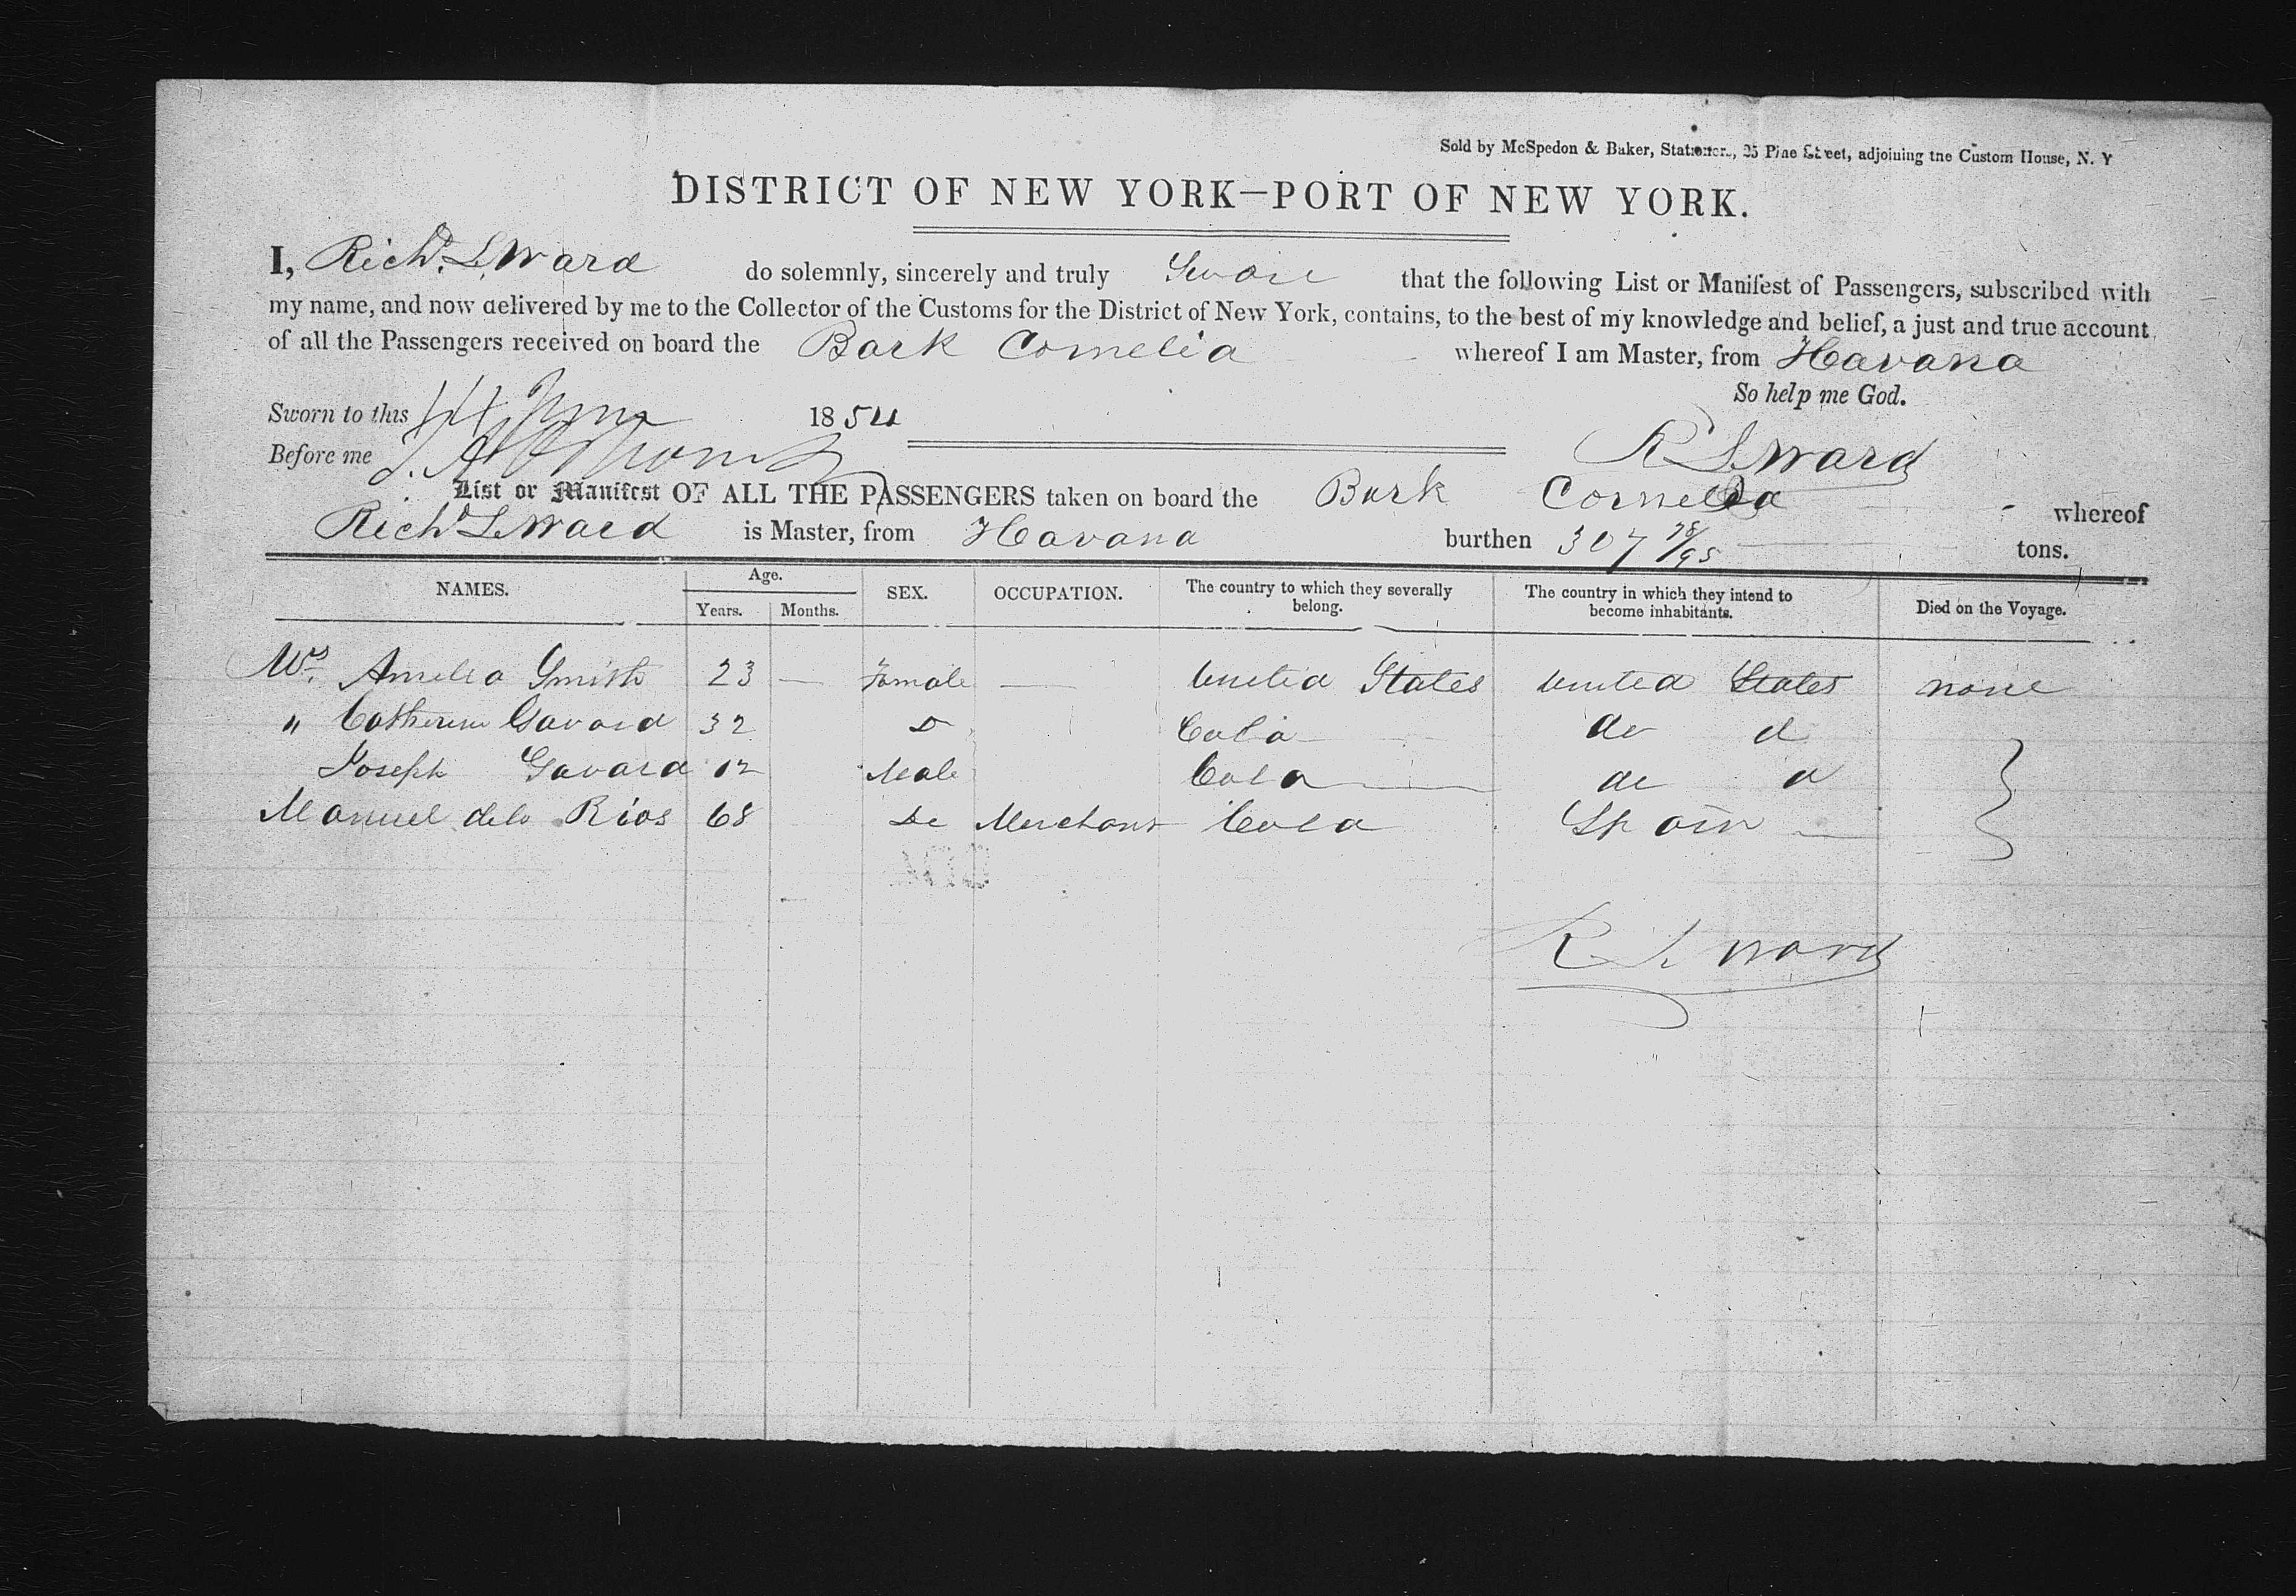 Sold by McSpedon & Baker, Stationers, 25 Pine Street, adjoining the Custom House, N. Y
DISTRICT OF NEW YORK—PORT OF NEW YORK.
I, Richd. S. Ward do solemnly, sincerely and truly Swear that the following List or Manifest of Passengers, subscribed with
my name, and now delivered by me to the Collector of the Customs for the District of New York, contains, to the best of my knowledge and belief, a just and true account
of all the Passengers received on board the Bark Cornelia whereof I am Master, from Havana
So help me God.
Sworn to this 1854
Before me R S Ward
List or Manifest OF ALL THE PASSENGERS taken on board the Bark Cornelia whereof
Richd S. Ward is Master, from Havana burthen 307 78/95 tons.
NAMES. Age. Years. Months. SEX. OCCUPATION. The country to which they severally belong. The country in which they intend to become inhabitants. Died on the Voyage.
Mrs. Amelia Smith 23 — Female — United States United States none
" Catherine Gavard 32 Do Cuba do do
Joseph Gavard 12 Male Cuba do do
Manuel delo Rios 68 Do Merchant Cuba Spain
R S. Ward